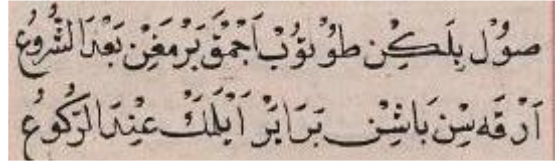 صُولْ بِلَكِنْ طُوتُوبْ اَچْمَقْ پَرْمَغِنْ بَعْدَ الشُّرُوعْ
اَرْقَه سِنْ بَاشِنْ بَرَابَرْ اَيْلَمَكْ عِنْدَ الرُّكُوعْ